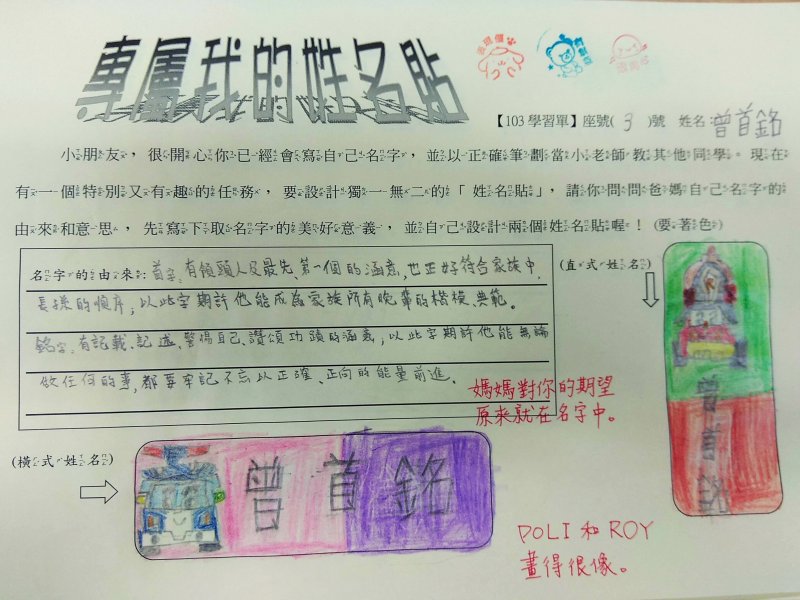 專屬我的姓名貼
【103學習單】座號( 3 )號 姓名:曾首銘
小朋友，很開心你已經會寫自己名字，並以正確筆劃當小老師教其他同學。現在
有一個特別又有趣的任務，要設計獨一無二的「姓名貼」，請你問問爸媽自己名字的
由來和意思，先寫下取名字的美好意義，並自己設計兩個姓名貼喔！(要著色)
名字的由來:首字:有領頭人及最先、第一個的涵意,也正好符合家族中,
長孫的順序,以此字期許他能成為家族所有晚輩的楷模、典範。
銘字:有記載、記述、警惕自己、讚頌功蹟的涵意,以此字期許他能無論
做任何的事,都要牢記不忘以正確、正向的能量前進。
(直式姓名)
曾首銘
媽媽對你的期望
原來就在名字中。
(橫式姓名)
曾首銘
POLI 和 ROY
畫得很像。